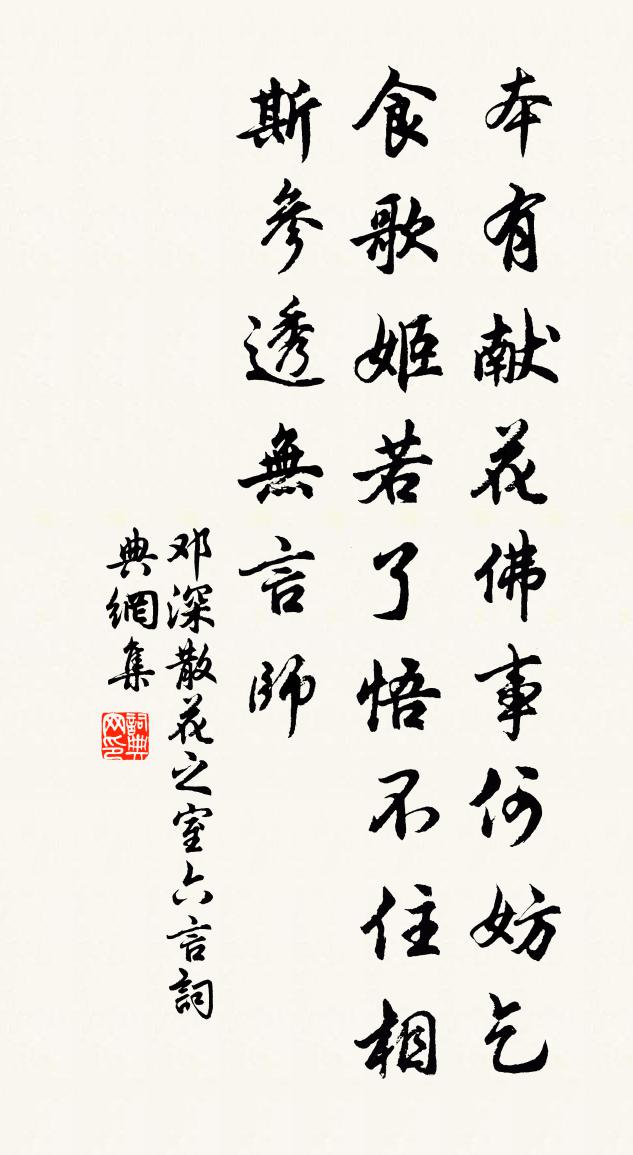 本有献花佛事何妨乞
食歌姬若了悟不住相
斯參透無言師
邓深散花之室六言詞
典網集
詞典网印